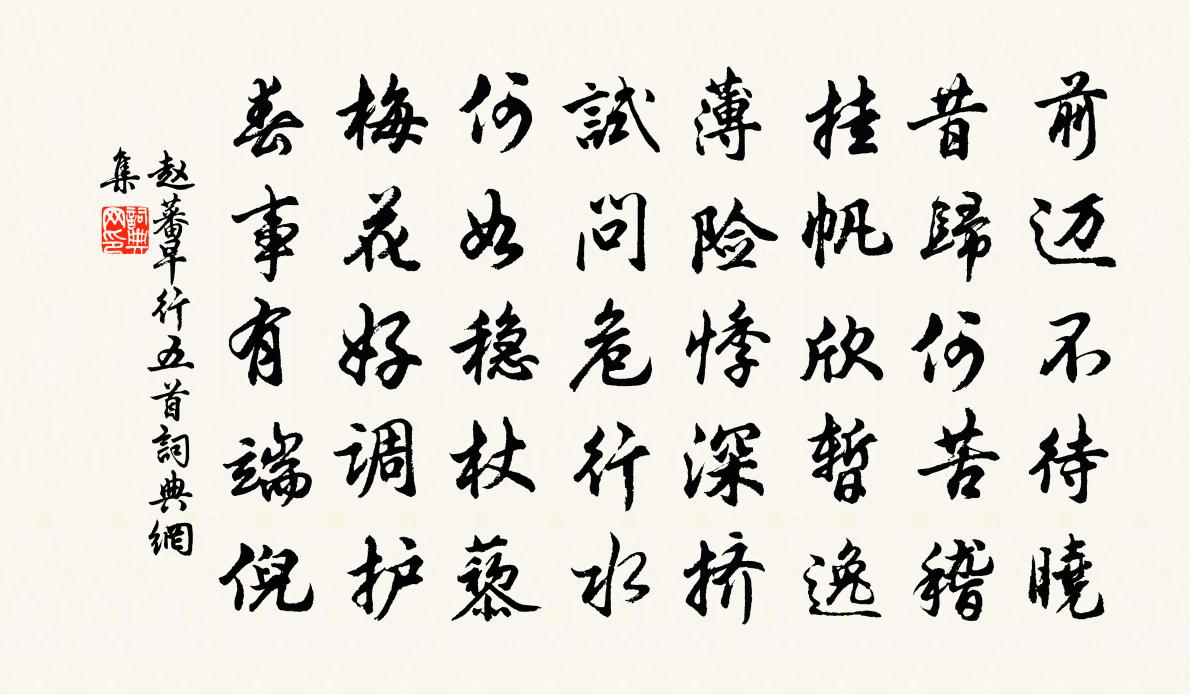 前迈不待曉
昔歸何苦稽
挂帆欣暫逸
薄险悸深挤
試问危行水
何如稳杖藜
梅花好调护
春事有端倪
赵蕃早行五首詞典網
集
詞典
网印